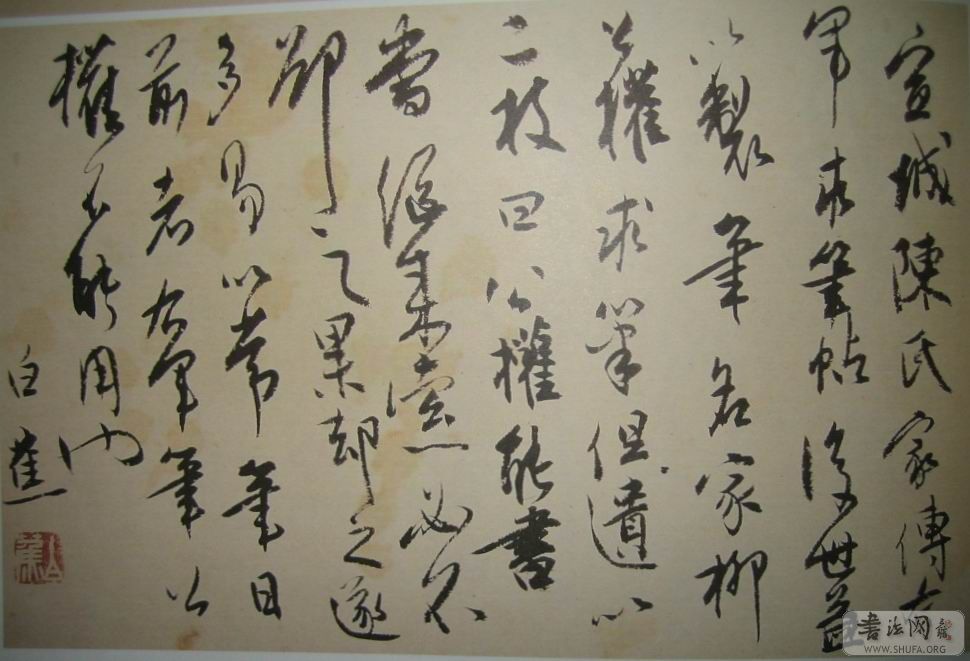 宣城陳氏家傳右
軍求筆帖後世益
以製筆名家柳
公權求筆但遺以
二枝曰公權能書
當繼來索必不
卻之果却之遂
多易以常筆曰
前者右軍筆公
權不能用也
白蕉
書法網
WWW.SHUFA.ORG